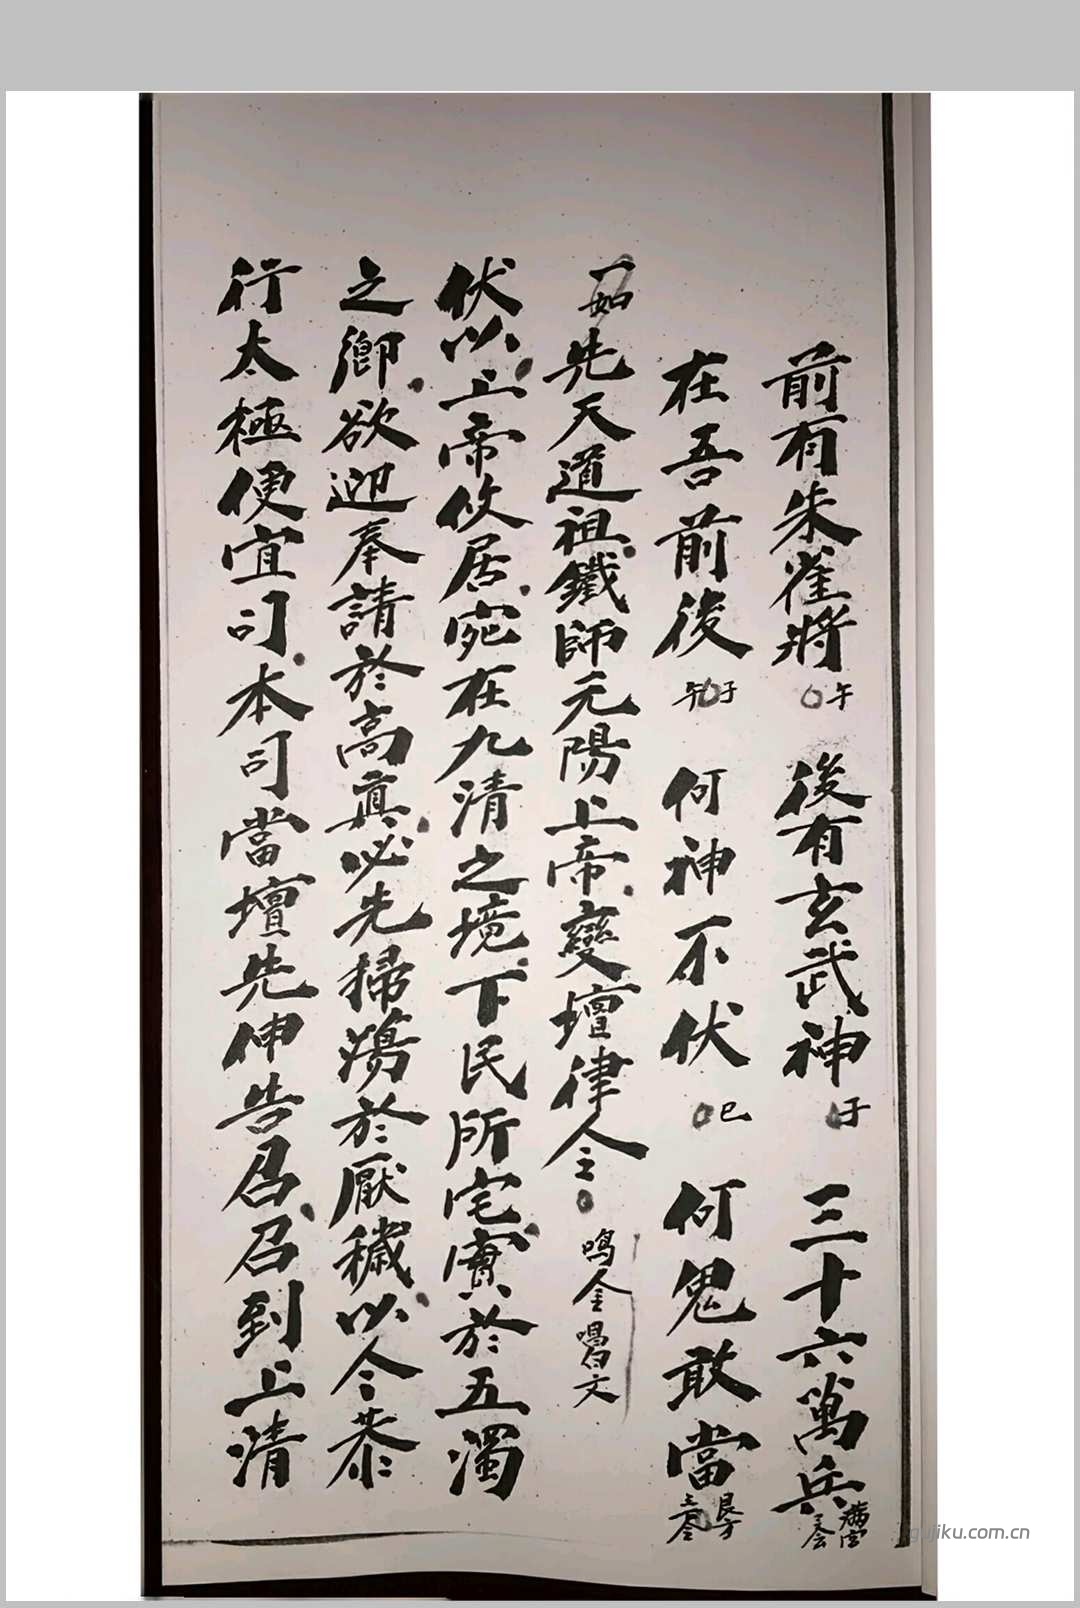 前有朱雀將 午 後有玄武神 子 三十六萬兵
在吾前後 子午 何神不伏 巳 何鬼敢當 艮方
一如先天道祖鐵師元陽上帝變壇律令 鳴金唱文
伏以上帝攸居宛在九清之境下民所宅實於五濁
之鄉欲迎奉請於高真必先掃蕩於厭穢以今恭
行太極便宜司本司當壇先伸告召召到上清
gujiku.com.cn